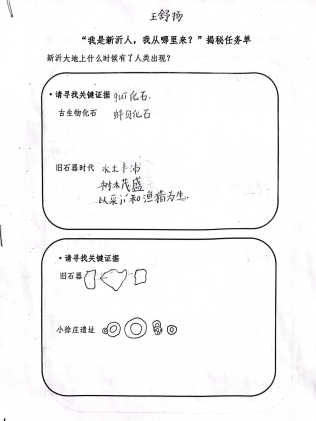 王舒扬
“我是新沂人，我从哪里来？”揭秘任务单
新沂大地上什么时候有了人类出现？
·请寻找关键证据 化石.
古生物化石 蚌贝化石
旧石器时代 水土丰沛
树木茂盛
以采 和渔猎为生.
·请寻找关键证据
旧石器
小徐庄遗址